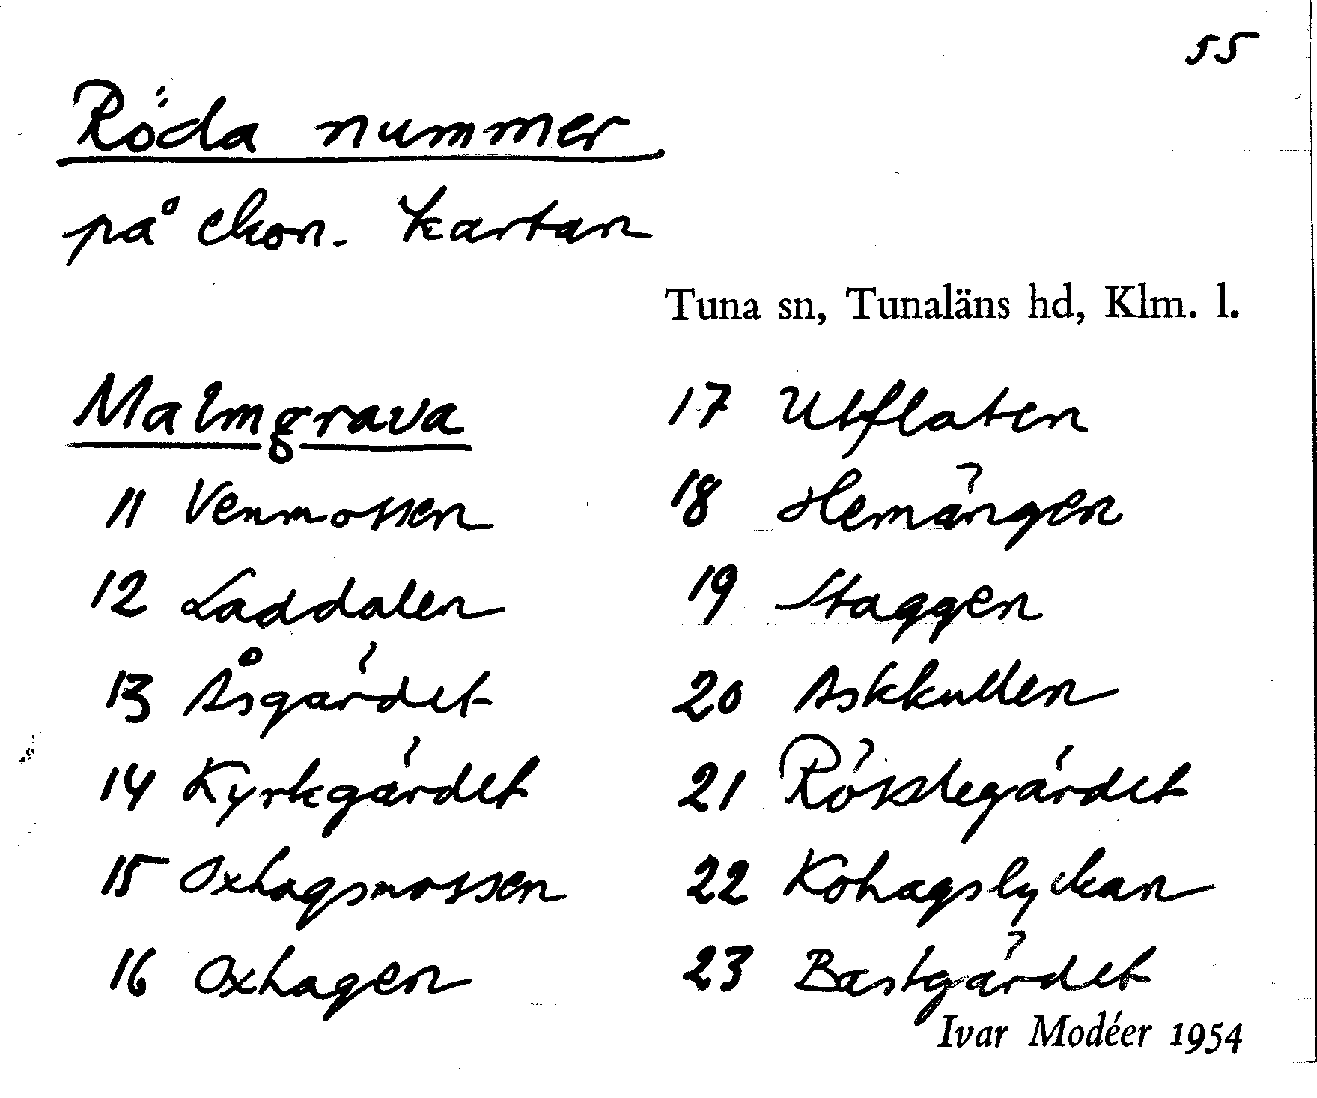 55
Röda nummer
på ekon. kartan
Tuna sn, Tunaläns hd, Klm. l.
Malmgrava
11 Venmossen
12 Laddalen
13 Åsgärdet
14 Kyrkgärdet
15 Oxhagsmossen
16 Oxhagen
17 Utflaten
18 Hemängen
19 Staggen
20 Askkullen
21 Rösslegärdet
22 Kohagslyckan
23 Bastgärdet
Ivar Modéer 1954